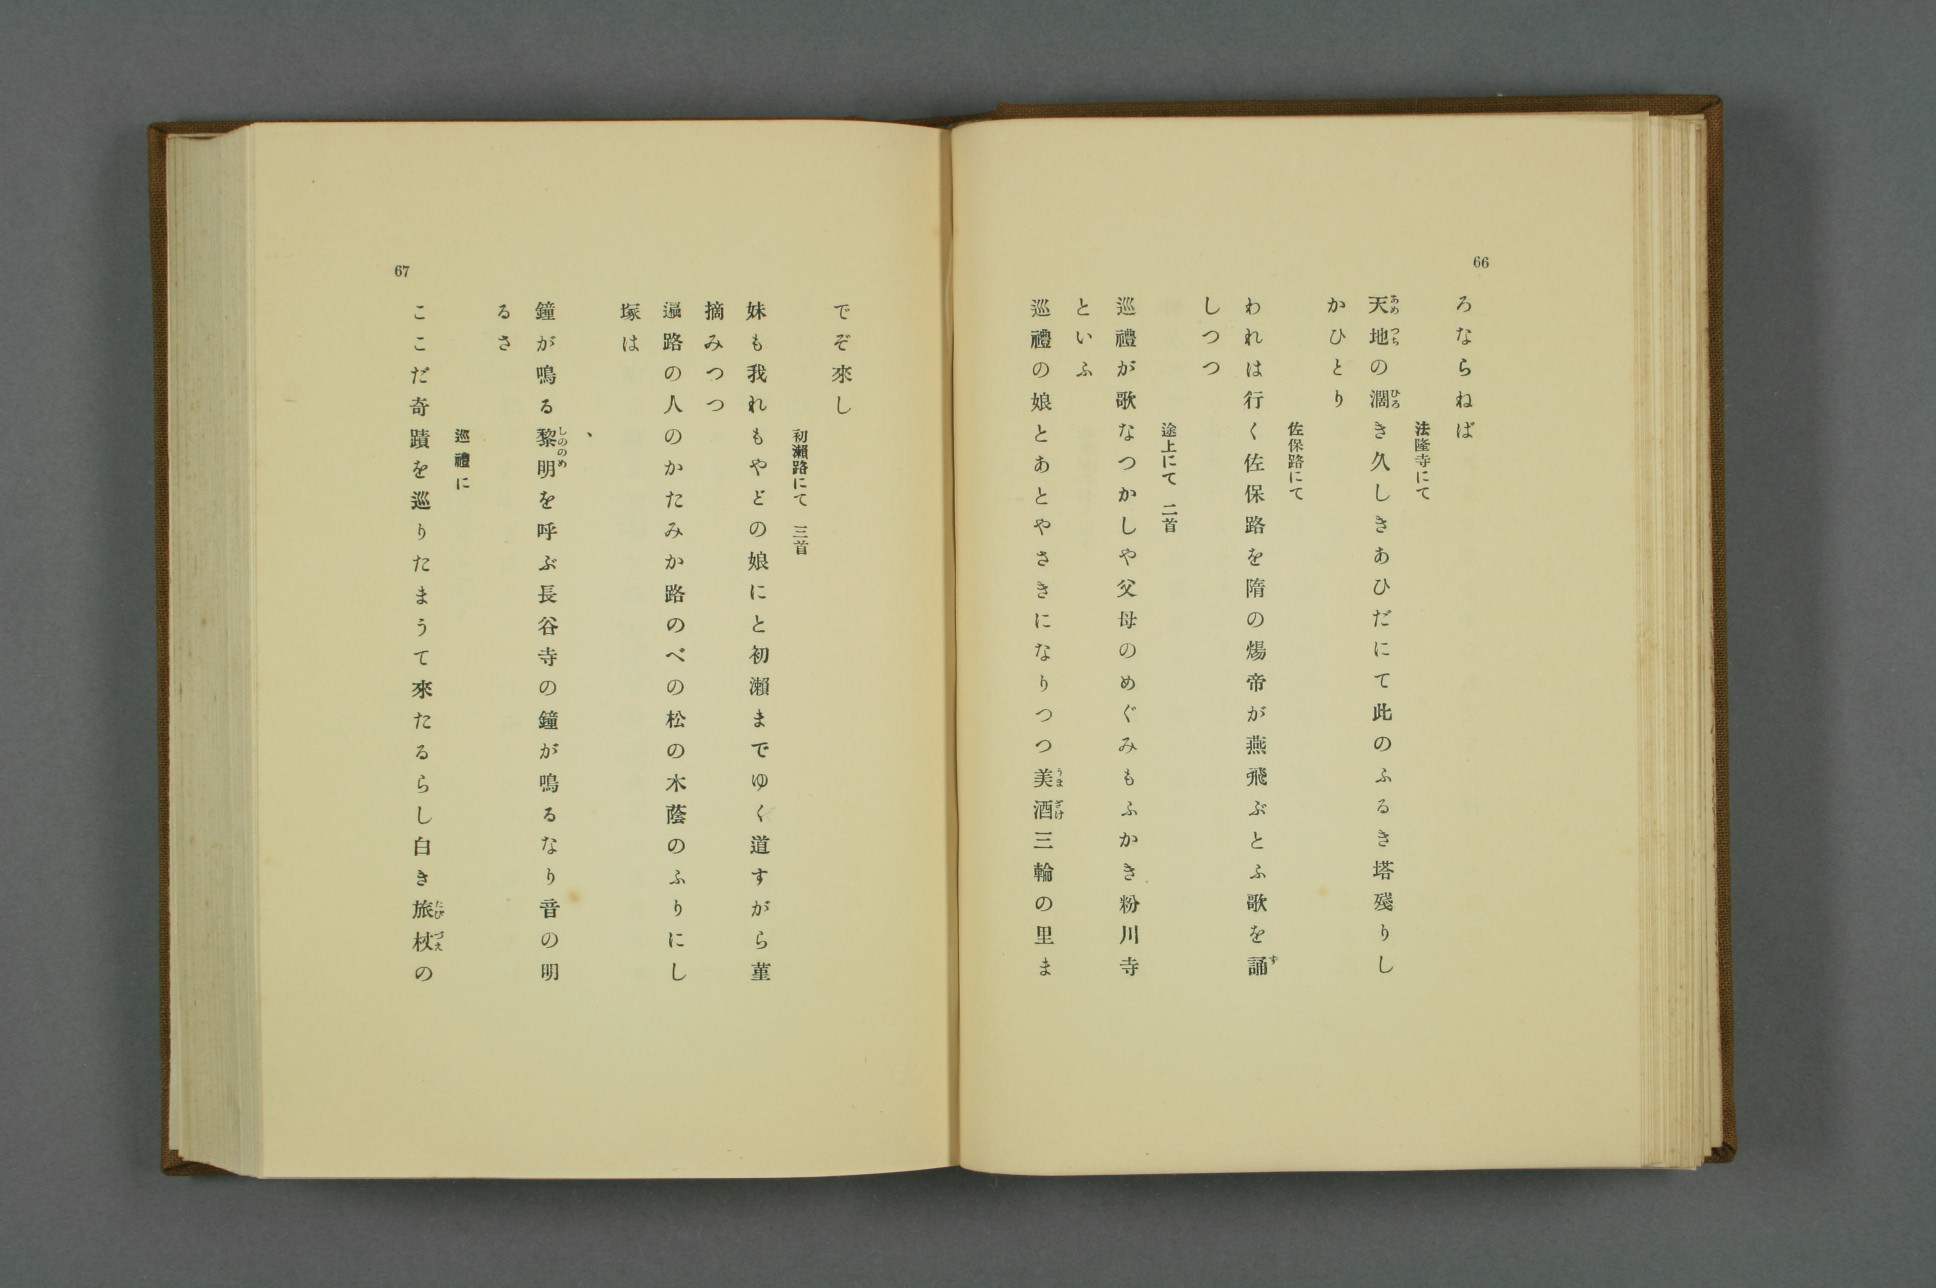 66
ろならねば
法隆寺にて
天地の濶き久しきあひだにて此のふるき塔殘りし
かひとり
佐保路にて
われは行く佐保路を隋の煬帝が燕飛ぶとふ歌を誦
しつつ
途上にて 二首
巡禮が歌なつかしや父母のめぐみもふかき粉川寺
といふ
巡禮の娘とあとやさきになりつつ美酒三輪の里ま
67
でぞ來し
初瀨路にて 三首
妹も我れもやどの娘にと初瀨までゆく道すがら菫
摘みつつ
遍路の人のかたみか路のべの松の木蔭のふりにし
塚は
鐘が鳴る黎明を呼ぶ長谷寺の鐘が鳴るなり音の明
るさ
巡禮に
ここだ奇蹟を巡りたまうて來たるらし白き旅杖の